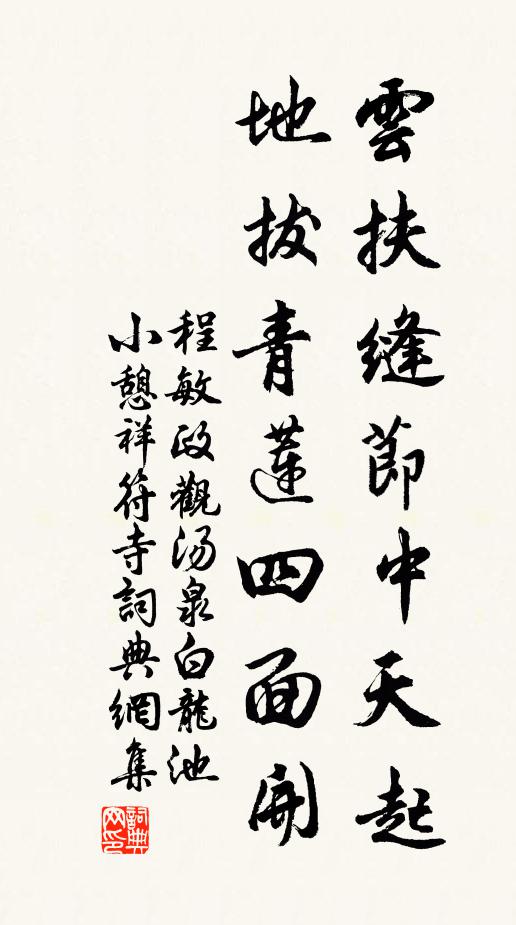 雲扶縫節中天起
地拔青蓮四面開
程敏政觀湯泉白龍池
小憩祥符寺詞典網集
詞典網印